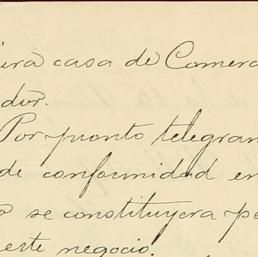 era casa de Comer
dor.
Por pronto telegram
de conformidad en
o se constituyera pe
este negocio.